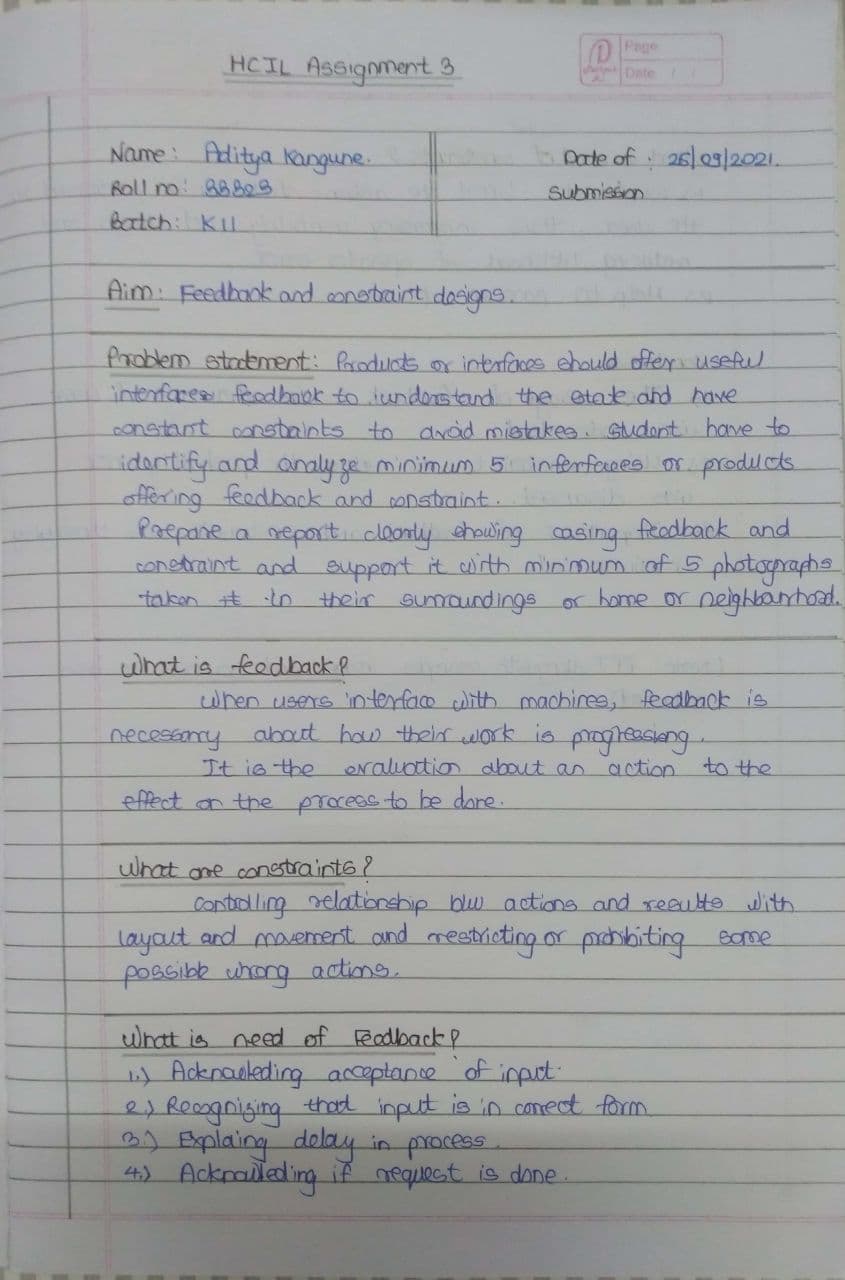 HCIL Assignment 3
Page
Date / /
Name: Aditya Kangune.
Date of : 25/09/2021.
Roll no:
Submission
Batch: K11
Aim: Feedback and constraint designs.
Problem statement: Products or interfaces should offer useful
interfaces feedback to understand the state and have
constant constraints to avoid mistakes. Student have to
identify and analyze minimum 5 interfaces or products
offering feedback and constraint.
Prepare a report clearly showing casing feedback and
constraint and support it with minimum of 5 photographs
taken in their surroundings or home or neighbourhood.
What is feedback?
When users interface with machines, feedback is
necessary about how their work is progressing.
It is the evaluation about an action to the
effect on the process to be done.
What are constraints?
Controlling relationship b/w actions and results with
layout and movement and restricting or prohibiting some
possible wrong actions.
What is need of Feedback?
1.) Acknowleding acceptance of input.
2.) Recognising that input is in correct form
3.) Explaing delay in process.
4.) Acknowleding if request is done.